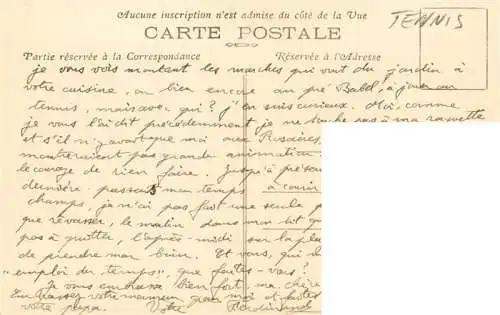 Aucune inscription n'est admise du côté de la Vue
TENNIS
CARTE POSTALE
Partie réservée à la Correspondance
Réservée à l'Adresse
je vous vois montant les marches qui vont du jardin à
votre cuisine, ou bien encore au pré Babel, à jouer au
tennis, mais avec qui? j'en suis curieux. Moi, comme
je vous l'ai dit précédemment je ne touche pas à ma raquette
et s'il n'y avait que moi aux Rosières,
montreraient pas grande animation.
le courage de rien faire. Jusqu'à présent
dernière passais mon temps à courir
champs, je n'ai pas fait une seule p
que rêvasser, le matin dans mon lit q
pas à quitter, l'après-midi sur la pla
de prendre mon bain. Et vous, qui
"emploi du temps", que faites-vous?
Je vous embrasse bien fort, ma chère
Embrassez votre maman pour moi et faites
votre papa. Votre Ferdinand